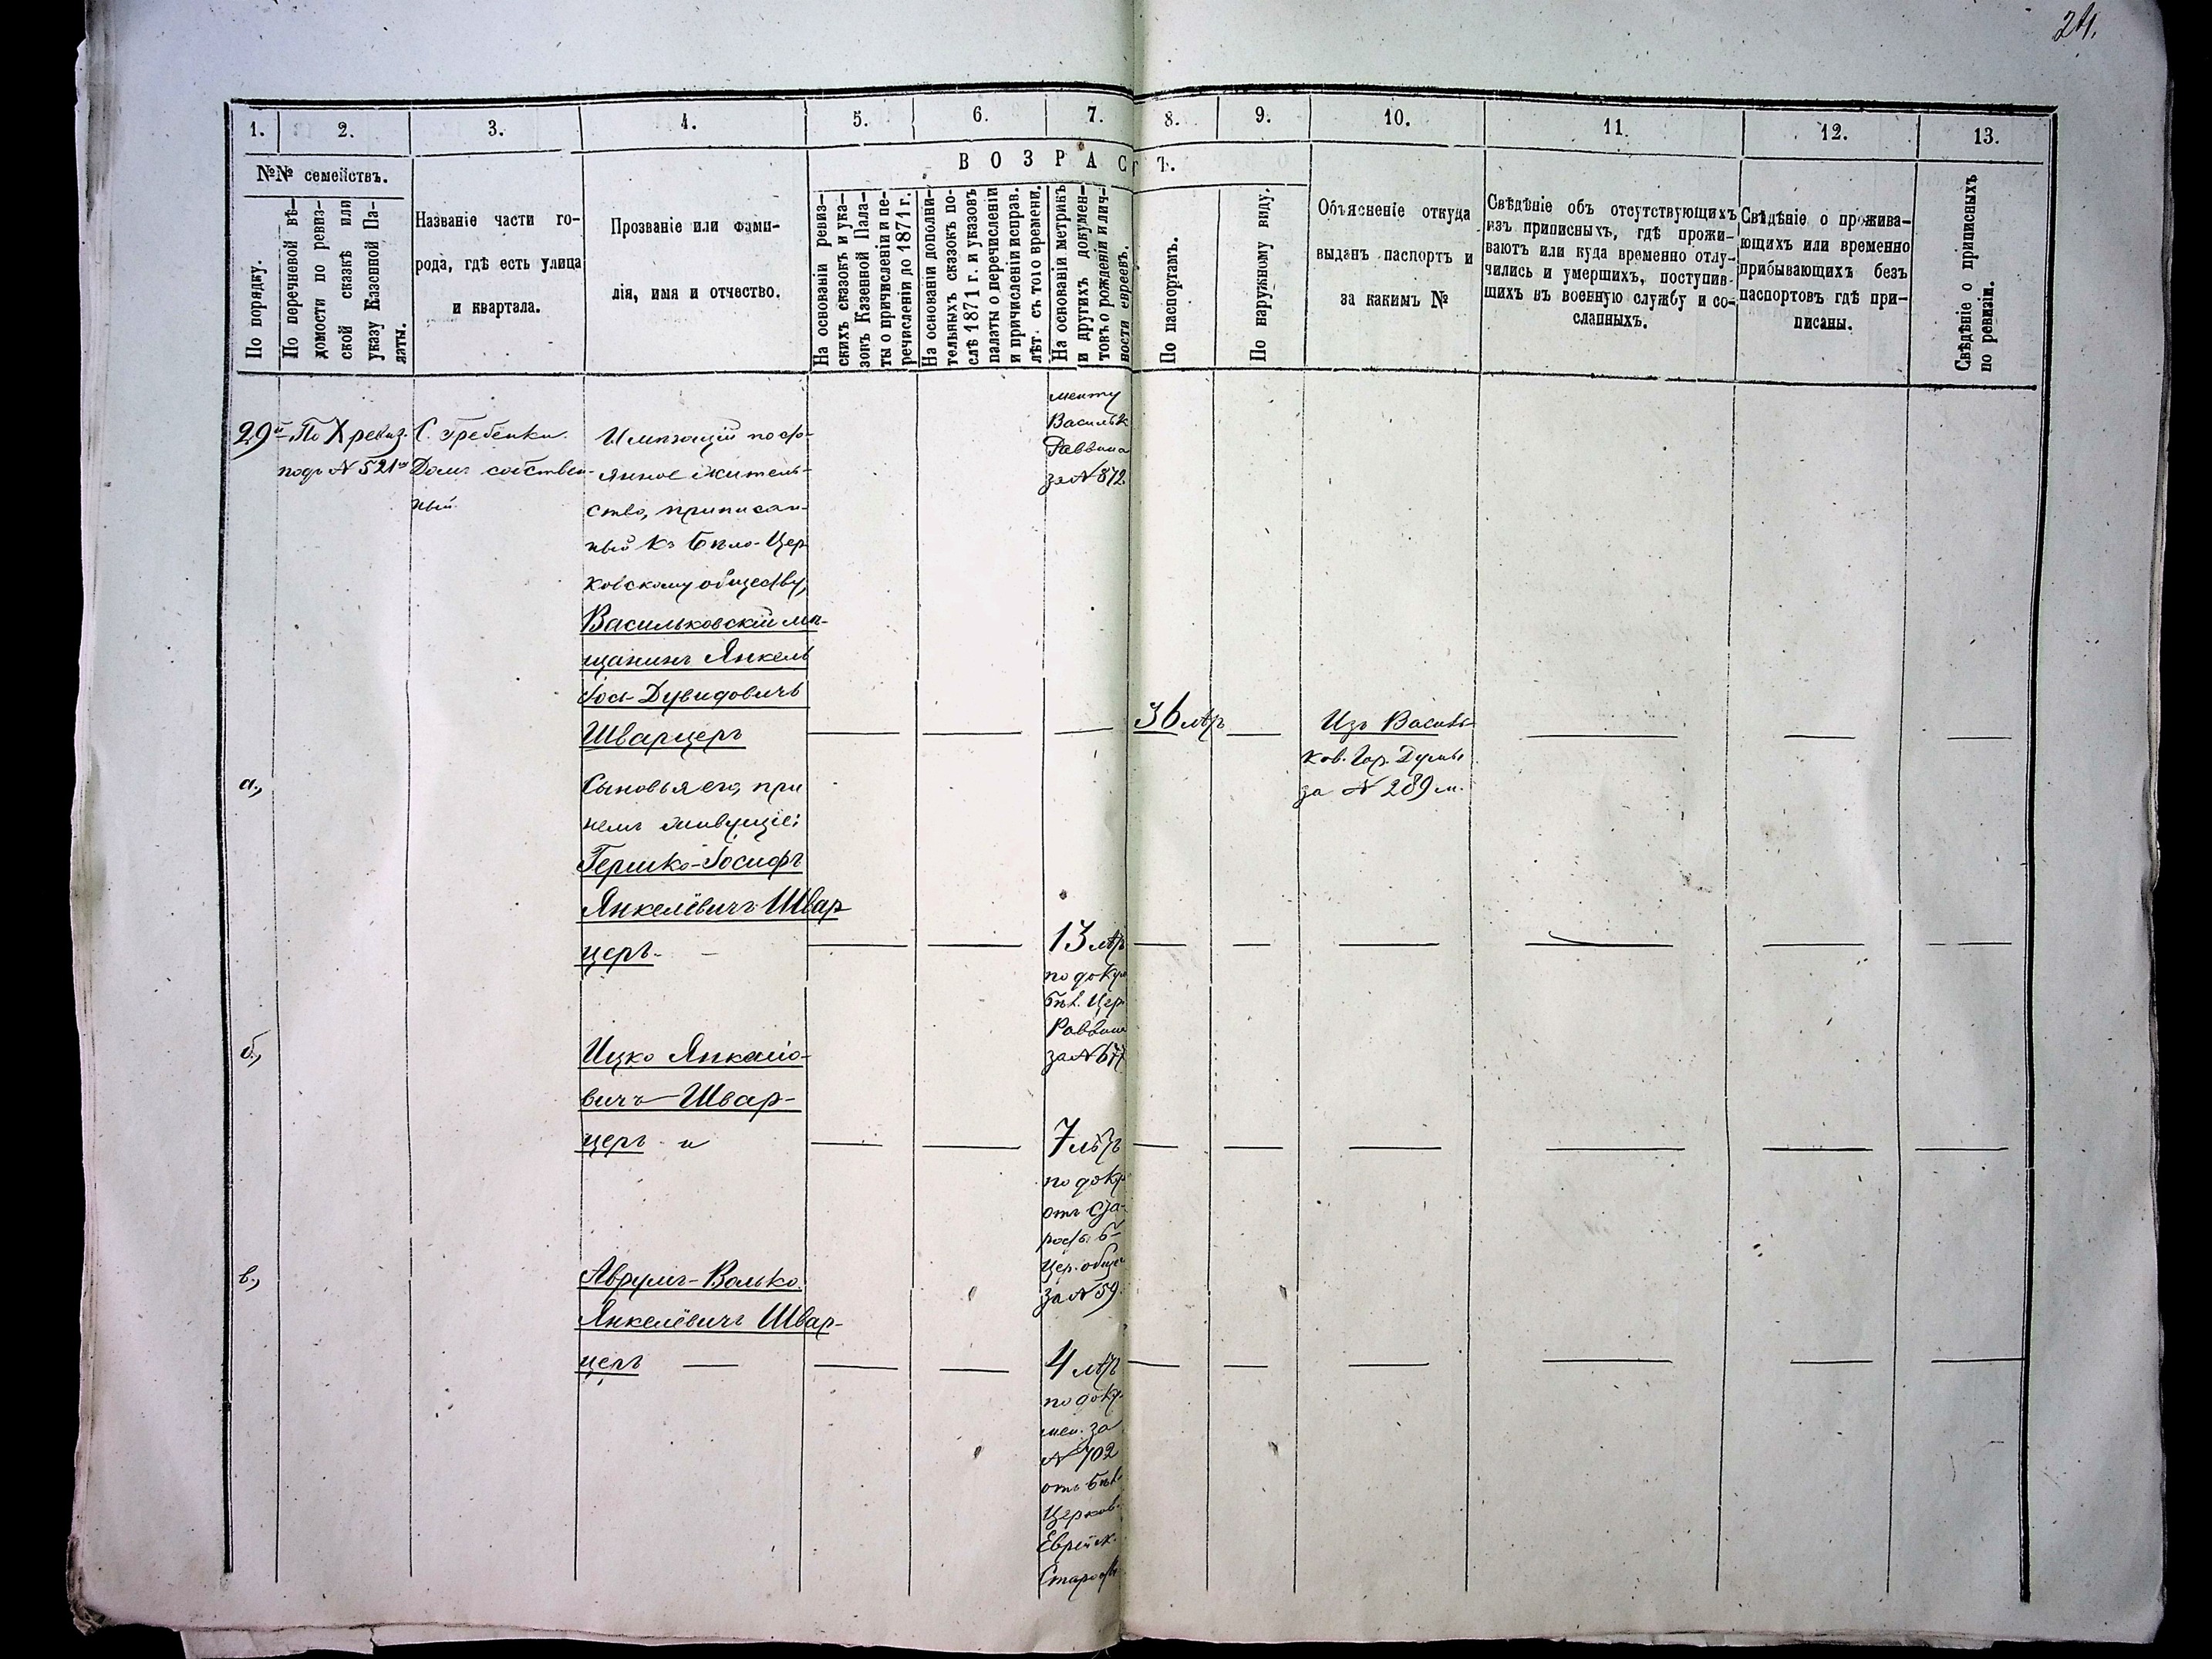 24.
1.
2.
3.
4.
5.
6.
7.
8.
9.
10.
11.
12.
13.
№№ семействъ.
ВОЗРАСТЪ.
По порядку.
По перечневой вѣ-
домости по ревиз-
ской сказкѣ или
указу Казенной Па-
латы.
Названіе части го-
рода, гдѣ есть улица
и квартала.
Прозваніе или фами-
лія, имя и отчество.
На основаніи ревиз-
скихъ сказокъ и ука-
зовъ Казенной Пала-
ты о причисленіи и пе-
речисленіи до 1871 г.
На основаніи дополни-
тельныхъ сказокъ по-
слѣ 1871 г. и указовъ
палаты о перечисленіи
и причисленіи исправ.
лѣт. съ того времени.
На основаніи метрикъ
и другихъ докумен-
товъ о рожденіи и лич-
ности евреевъ.
По паспортамъ.
По наружному виду.
Объясненіе откуда
выданъ паспортъ и
за какимъ №
Свѣдѣніе объ отсутствующихъ
изъ приписныхъ, гдѣ прожи-
ваютъ или куда временно отлу-
чились и умершихъ, поступив-
шихъ въ военную службу и со-
сланныхъ.
Свѣдѣніе о прожива-
ющихъ или временно
прибывающихъ безъ
паспортовъ гдѣ при-
писаны.
Свѣдѣніе о приписныхъ
по ревизіи.
менту
Васильк
Раввина
за № 872
29й
По X ревиз.
подъ № 521м
С. Гребенки.
Домъ собствен-
ный
Имѣющій посто-
янное житель-
ство, приписан-
ный къ Бѣло-Цер
ковскому обществу,
Васильковскій мѣ-
щанинъ Янкель
Іось-Дувидовичъ
Шварцеръ
36 лѣтъ
Изъ Василь-
ков. Гор. Думы
за № 289 м.
а.,
Сыновья его, при
немъ живущіе:
Гершко-Іосифъ
Янкелевичъ Швар
церъ.
13 лѣтъ
по доку
Бѣл. Цер.
Раввина
за № 677
б.,
Ицко Янкеліо-
вичъ Швар-
церъ и
7 лѣтъ
по доку
отъ Ста-
рост. Б-
Цер. общ
за № 59.
в.,
Аврумъ-Волько
Янкелевичъ Швар-
церъ
4 лѣтъ
по доку-
мен. за
№ 702
отъ Бѣл.
Церков.
Еврейск.
Старост